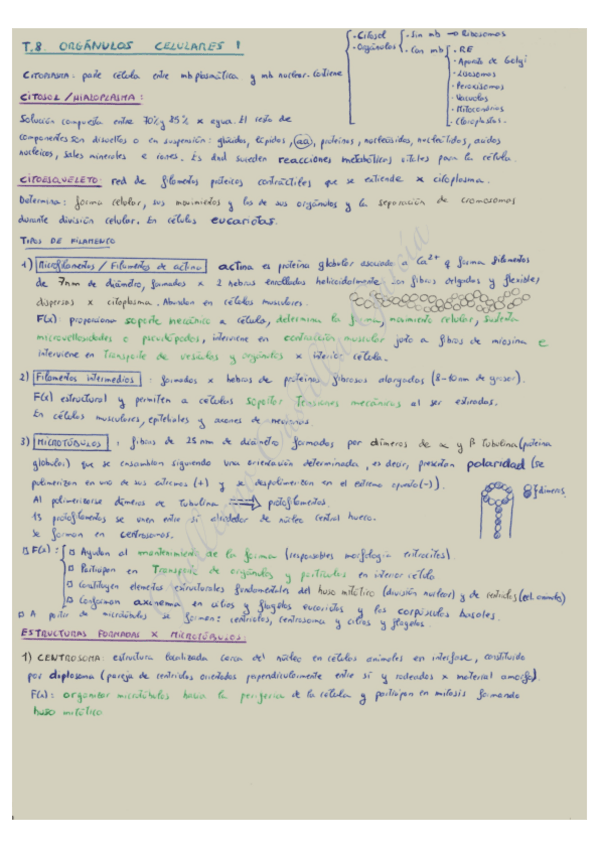 T.8. ORGÁNULOS CELULARES I
- Citosol
- Orgánulos
- Sin mb → Ribosomas
- Con mb
- RE
- Aparato de Golgi
- Lisosomas
- Peroxisomas
- Vacuolas
- Mitocondrias
- Cloroplastos
CITOPLASMA: parte célula entre mb plasmática y mb nuclear. Contiene
CITOSOL / HIALOPLASMA:
Solución compuesta entre 70% y 85% x agua. El resto de
componentes son disueltos o en suspensión: glúcidos, lípidos, aa, proteínas, nucleósidos, nucleótidos, ácidos
nucleicos, sales minerales e iones. Es dnd suceden reacciones metabólicas vitales para la célula.
CITOESQUELETO: red de filamentos proteicos contráctiles que se extiende x citoplasma.
Determina: forma celular, sus movimientos y los de sus orgánulos y la separación de cromosomas
durante división celular. En células eucariotas.
TIPOS DE FILAMENTO
1) Microfilamentos / Filamentos de actina actina es proteína globular asociada a Ca2+ q forma filamentos
de 7nm de diámetro, formados x 2 hebras enrolladas helicoidalmente. Son fibras delgadas y flexibles,
dispersos x citoplasma. Abundan en células musculares.
F(x): proporcionan soporte mecánico a célula, determina la forma, movimiento celular, sustenta
microvellosidades o pseudópodos, interviene en contracción muscular junto a fibras de miosina e
interviene en transporte de vesículas y orgánulos x interior célula.
2) Filamentos intermedios: formados x hebras de proteínas fibrosas alargadas (8-10nm de grosor).
F(x) estructural y permiten a células soportar tensiones mecánicas al ser estiradas.
En células musculares, epiteliales y axones de neuronas.
3) MICROTÚBULOS: fibras de 25 nm de diámetro formados por dímeros de α y β tubulina (proteína
globular) que se ensamblan siguiendo una orientación determinada, es decir, presentan polaridad (se
polimerizan en uno de sus extremos (+) y despolimerizan en el extremo opuesto (-)).
Al polimerizarse dímeros de tubulina ⟹ protofilamentos.
dímeros
13 protofilamentos se unen entre sí alrededor de núcleo central hueco.
Se forman en centrosomas.
F(x):
Ayudan al mantenimiento de la forma (responsables morfología eritrocitos)
Participan en transporte de orgánulos y partículas en interior célula
Constituyen elementos estructurales fundamentales del huso mitótico (división nuclear) y de centriolos (cél. animales)
Conforman axonema en cilios y flagelos eucariotas y los corpúsculos basales.
A partir de microtúbulos se forman: centriolos, centrosoma y cilios y flagelos.
ESTRUCTURAS FORMADAS X MICROTÚBULOS:
1) CENTROSOMA: estructura localizada cerca del núcleo en células animales en interfase, constituido
por diplosoma (pareja de centriolos orientados perpendicularmente entre sí y rodeados x material amorfo).
F(x): organizar microtúbulos hacia la periferia de la célula y participan en mitosis formando
huso mitótico